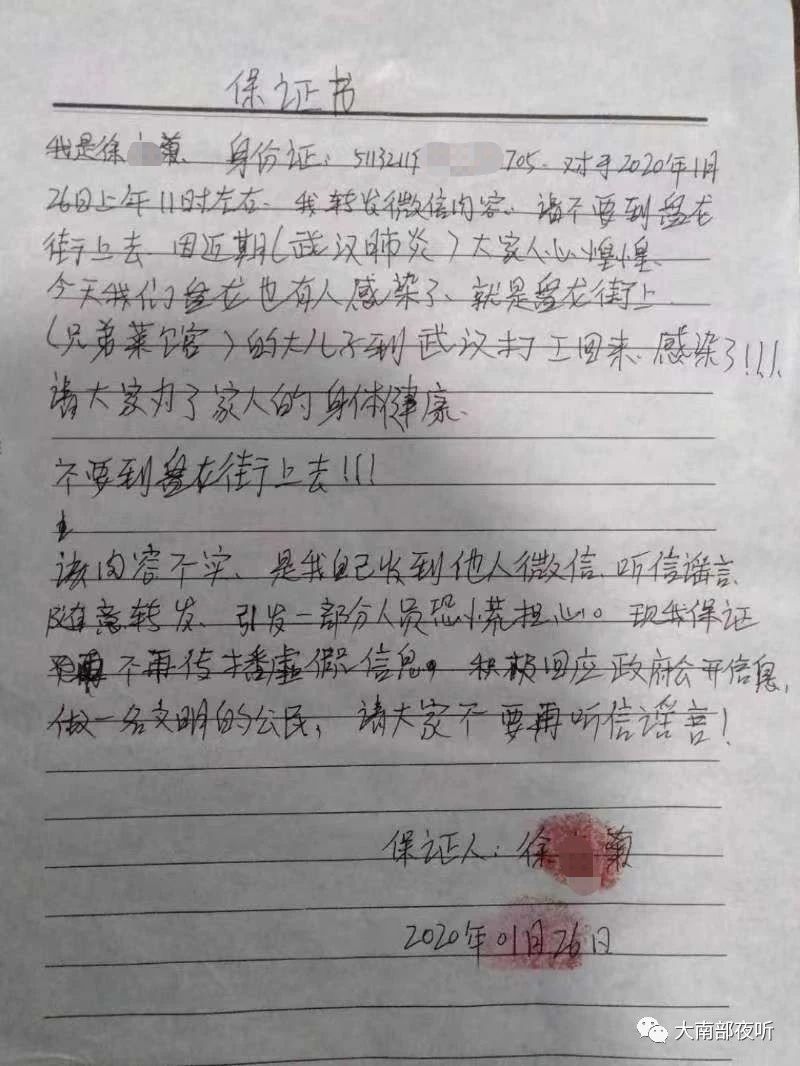 保证书
我是徐 菊、身份证：51132119 705. 对于2020年1月
26日上午11时左右、我转发微信内容、请不要到盘龙
街上去 因近期（武汉肺炎）大家人心惶惶、
今天我们盘龙也有人感染了、就是盘龙街上
（兄弟菜馆）的大儿子到武汉打工回来、感染了！！！
请大家为了家人的身体健康、
不要到盘龙街上去！！！
该内容不实、是我自己收到他人微信、听信谣言、
随意转发、引发一部分人员恐慌担心。现我保证
不再传播虚假信息，积极回应政府公开信息，
做一名文明的公民，请大家不要再听信谣言！
保证人：徐 菊
2020年01月26日
大南部夜听